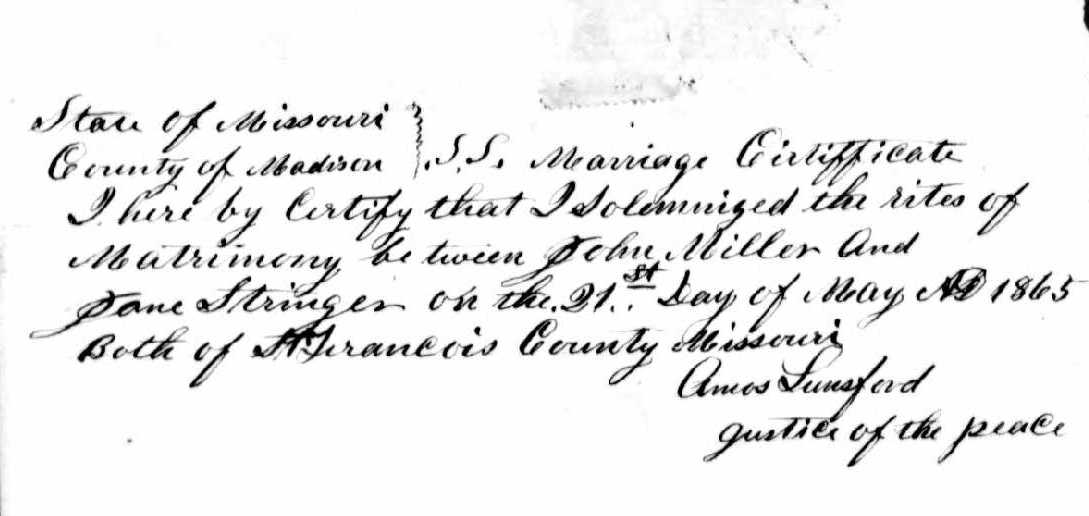 State of Missouri
County of Madison } S.S. Marriage Cirtifficate
I here by Certify that I Solemnized the rites of
Matrimony be tween John Miller And
Jane Stringer on the 21st Day of May AD 1865
Both of St Francois County Missouri
Amos Lunsford
Justice of the peace